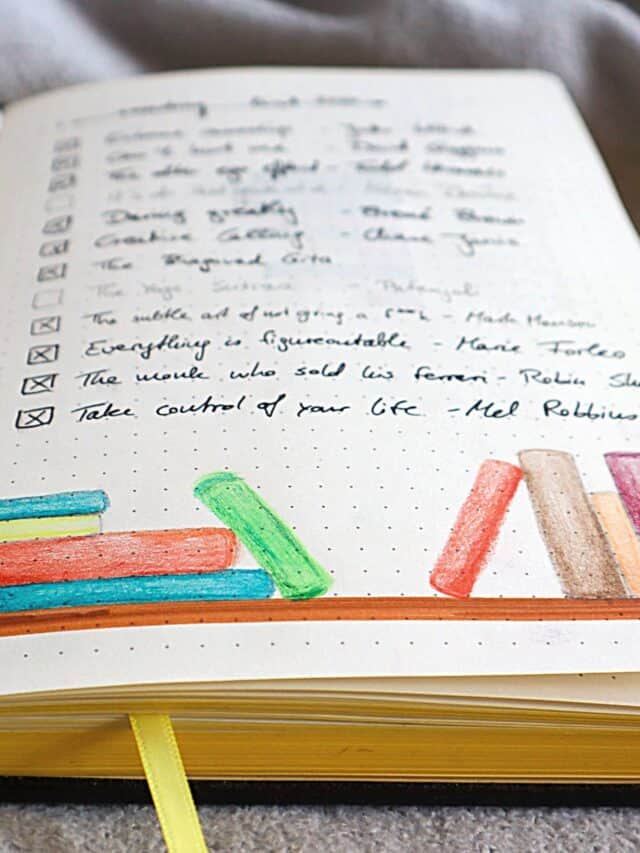 Extreme ownership -
Can't hurt me - David Goggins
The alter ego effect - Todd Herman
Daring greatly - Brené Brown
Creative Calling - Chase Jarvis
The Bhagavad Gita
The Yoga Sutras - Patanjali
The subtle art of not giving a f**k - Mark Manson
Everything is figureoutable - Marie Forleo
The monk who sold his ferrari - Robin Sha
Take control of your life - Mel Robbins